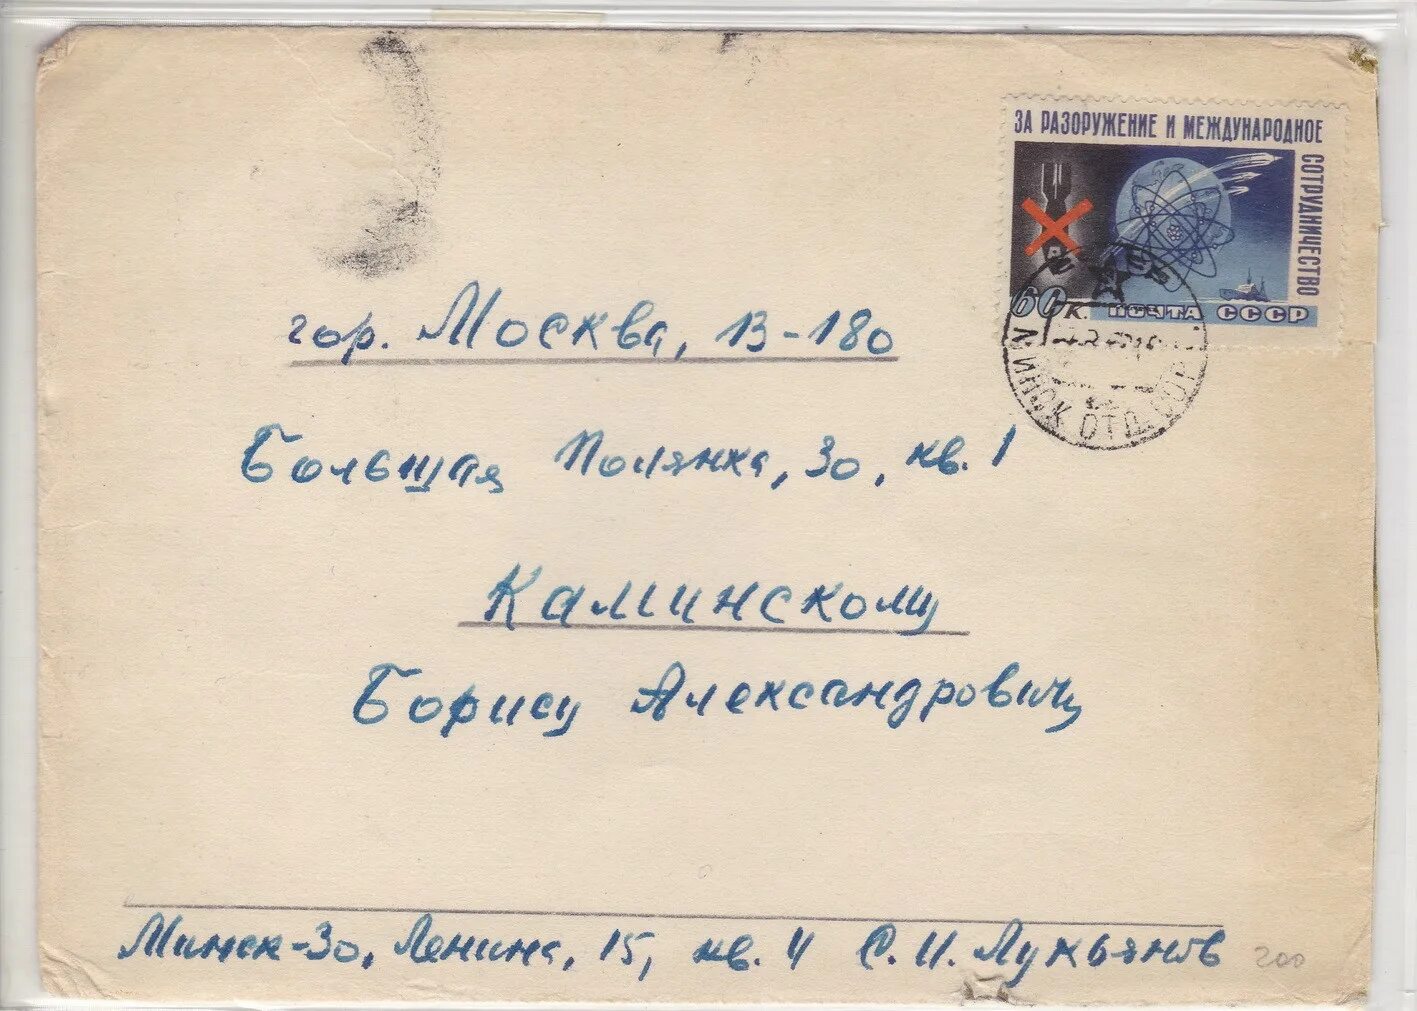 ЗА РАЗОРУЖЕНИЕ И МЕЖДУНАРОДНОЕ
СОТРУДНИЧЕСТВО
60 К. ПОЧТА СССР
МИНСК ОТД. СОР
гор. Москва, В-180
Большая Полянка, 30, кв. 1
Калинскому
Борису Александровичу
Минск-30, Ленина, 15, кв. 4 С. И. Лукьянов
200